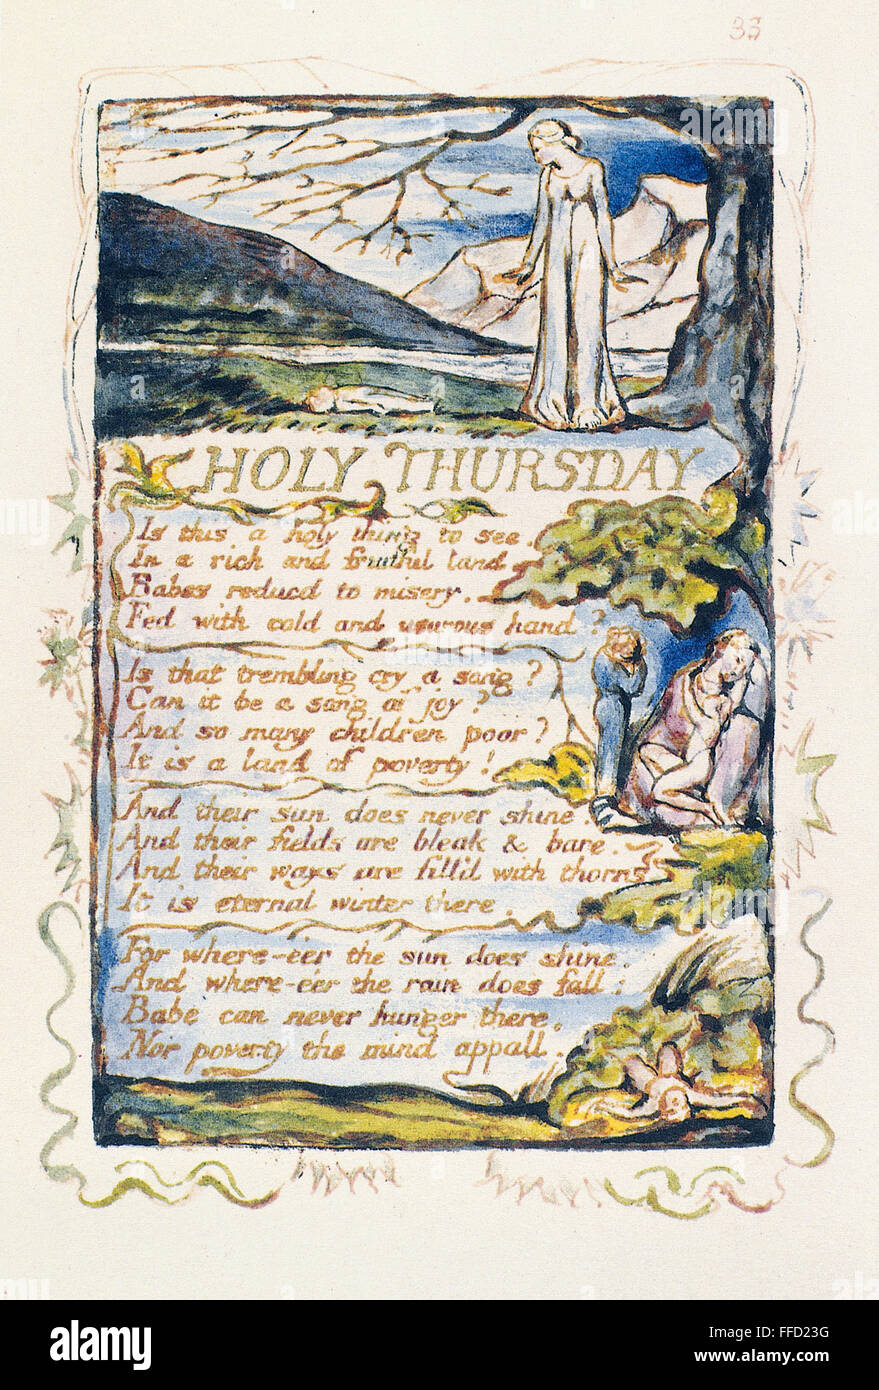 33
HOLY THURSDAY
Is this a holy thing to see.
In a rich and fruitful land.
Babes reducd to misery.
Fed with cold and usurous hand?
Is that trembling cry a song?
Can it be a song of joy?
And so many children poor?
It is a land of poverty!
And their sun does never shine
And their fields are bleak & bare.
And their ways are fill'd with thorns
It is eternal winter there.
For where-e'er the sun does shine.
And where-e'er the rain does fall:
Babe can never hunger there,
Nor poverty the mind appall.
alamy
Image ID: FFD23G
www.alamy.com